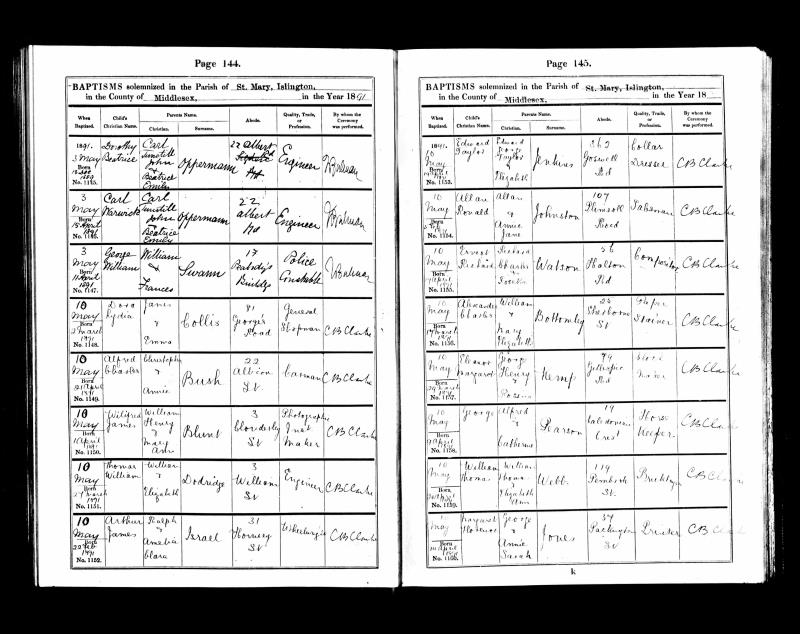 Page 144.
BAPTISMS solemnized in the Parish of St. Mary, Islington,
in the County of Middlesex, in the Year 1891
When Baptized. Child's Christian Name. Parents Name. Abode. Quality, Trade, or Profession. By whom the Ceremony was performed.
Christian. Surname.
1891. 3 May Born 1889 No. 1145. Dorothy Beatrice Carl John & Beatrice Emily Oppermann 22 Albert Rd Engineer
3 May Born 15 April 1891 No. 1146. Carl Warwick Carl John & Beatrice Emily Oppermann 22 Albert Rd Engineer
3 May Born 11 April 1891 No. 1147. George William William & Frances Swann 17 Peabody's Buildgs Police Constable
10 May Born 2 March 1891 No. 1148. Dora Lydia James & Emma Collis 91 George's Road General Shopman CB Clarke
10 May Born 21 April 1891 No. 1149. Alfred Charles Christopher & Annie Bush 22 Albion St. Carman CB Clarke
10 May Born 1 April 1891 No. 1150. Wilfred James William Henry & Mary Ann Blunt 3 St Photographic Inst Maker CB Clarke
10 May Born 27 March 1891 No. 1151. Thomas William William & Elizabeth Dodridge 3 Williams St Engineer CB Clarke
10 May Born 22 Feb 1891 No. 1152. Arthur James Ralph & Amelia Clara Israel 31 Hornsey St Wheelwright CB Clarke
Page 145.
BAPTISMS solemnized in the Parish of St. Mary, Islington,
in the County of Middlesex, in the Year 18
When Baptized. Child's Christian Name. Parents Name. Abode. Quality, Trade, or Profession. By whom the Ceremony was performed.
Christian. Surname.
1891. 10 May Born No. 1153. Edward Taylor Edward George Taylor & Elizabeth Jenkins 262 Goswell Rd Collar Dresser CB Clarke
10 May Born No. 1154. Allan Ronald Allan & Annie Jane Johnston 107 Plimsoll Road Salesman CB Clarke
10 May Born April 1891 No. 1155. Ernest Richard Richard Charles & Watson 56 Halton Rd Compositor CB Clarke
10 May Born 17 March 1891 No. 1156. Alexander Charles William & Mary Elizabeth Bottomley St Stainer CB Clarke
10 May Born 29 March 1891 No. 1157. Eleanor Margaret George Henry & Kemp 94 Gillespie Rd Maker CB Clarke
10 May Born April 1891 No. 1158. George Alfred & Catherine Pearson 19 Caledonian Crest Horse Keeper CB Clarke
10 May Born No. 1159. William Thomas William Thomas & Elizabeth Ann Webb 119 Pembroke St. Bricklayer CB Clarke
May Born April No. 1160. Margaret Florence George & Annie Sarah Jones 34 Packington St Printer CB Clarke
k